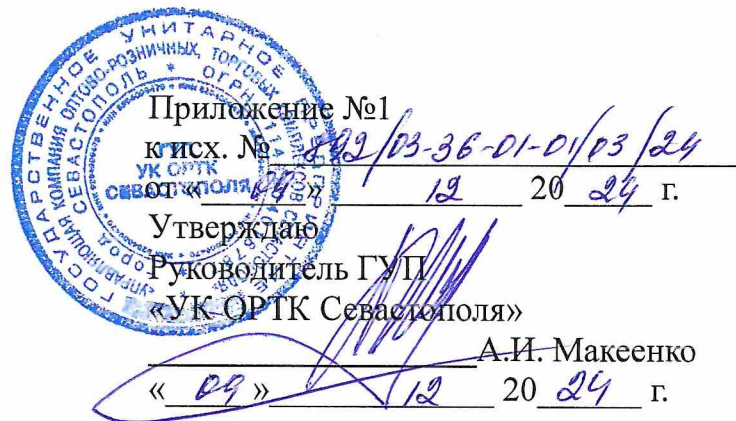 Приложение №1
к исх. № 892/03-36-01-01/03/24
от « 09 » 12 20 24 г.
Утверждаю
Руководитель ГУП
«УК ОРТК Севастополя»
А.И. Макеенко
« 09 » 12 20 24 г.
ГОСУДАРСТВЕННОЕ УНИТАРНОЕ
«УПРАВЛЯЮЩАЯ КОМПАНИЯ ОПТОВО-РОЗНИЧНЫХ, ТОРГОВЫХ
город СЕВАСТОПОЛЬ * ОГРН
УК ОРТК
СЕВАСТОПОЛЯ